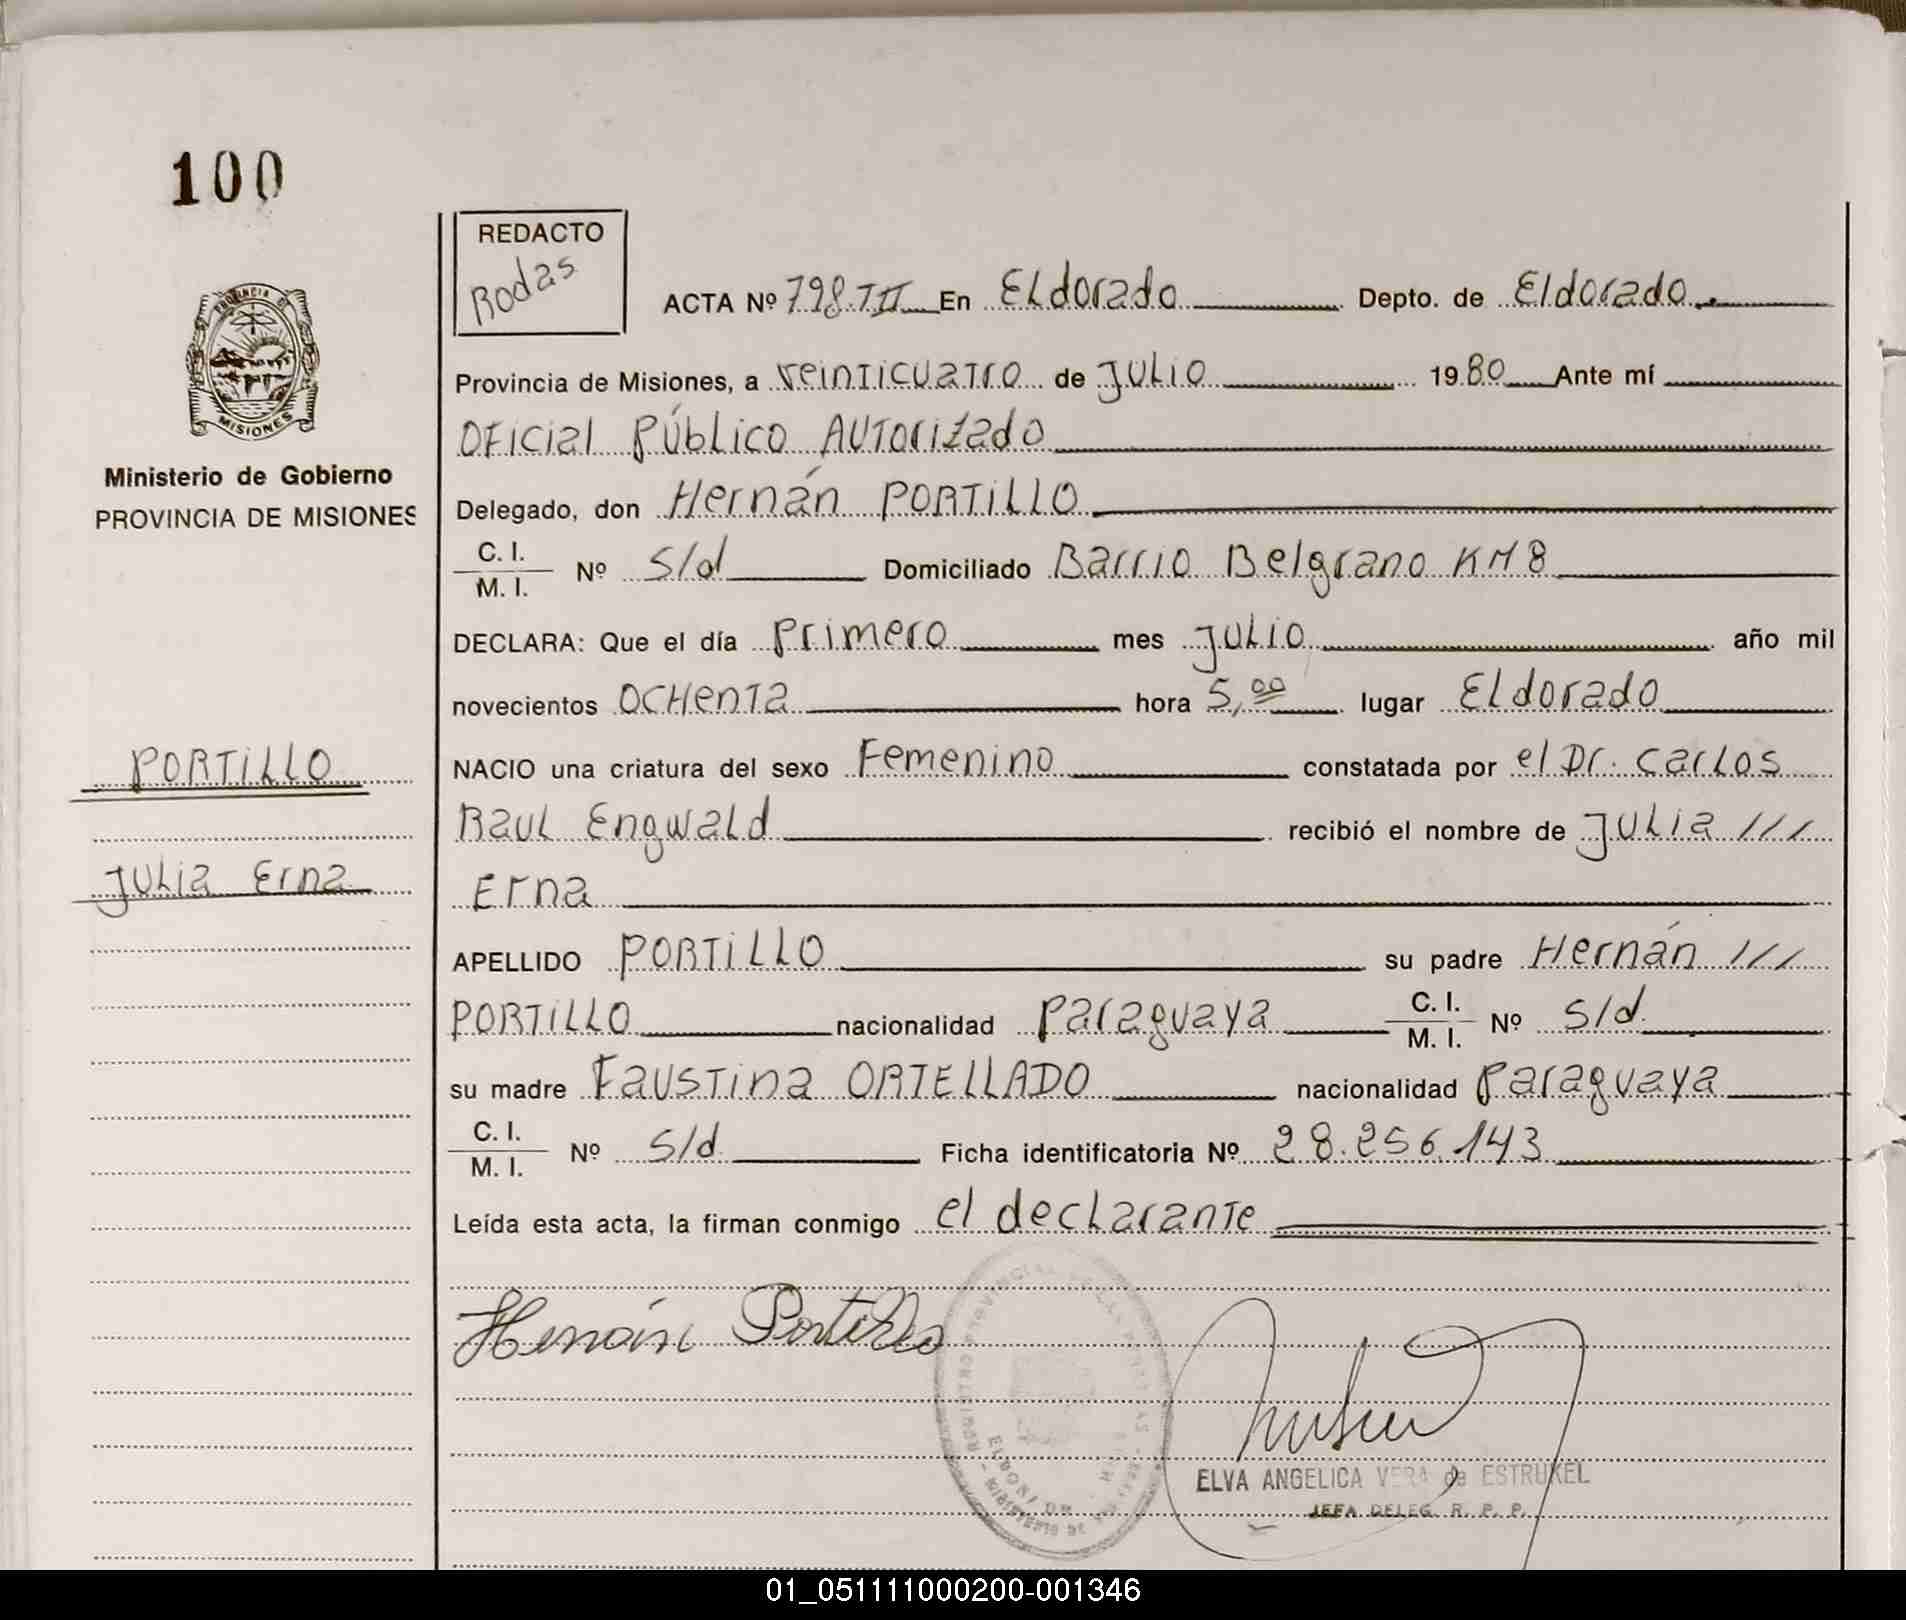 100
REDACTO
Rodas
PROVINCIA DE
MISIONES
ACTA Nº 798.TII En Eldorado Depto. de Eldorado.
Provincia de Misiones, a veinticuatro de Julio 1980 Ante mí
Oficial Público Autorizado
Ministerio de Gobierno
PROVINCIA DE MISIONES
Delegado, don Hernán PORTILLO
C. I.
M. I. Nº s/d Domiciliado Barrio Belgrano KM 8
DECLARA: Que el día primero mes Julio año mil
novecientos ochenta hora 5,00 lugar Eldorado
PORTILLO
NACIO una criatura del sexo Femenino constatada por el Dr. Carlos
Raul Engwald recibió el nombre de Julia ///
Julia Erna
Erna
APELLIDO PORTILLO su padre Hernán ///
PORTILLO nacionalidad Paraguaya C. I.
M. I. Nº s/d
su madre Faustina ORTELLADO nacionalidad Paraguaya
C. I.
M. I. Nº s/d Ficha identificatoria Nº 28.256.143
Leída esta acta, la firman conmigo el declarante
Hernán Portillo
ELVA ANGELICA VERA de ESTRUKEL
JEFA DELEG. R. P. P.
01_051111000200-001346